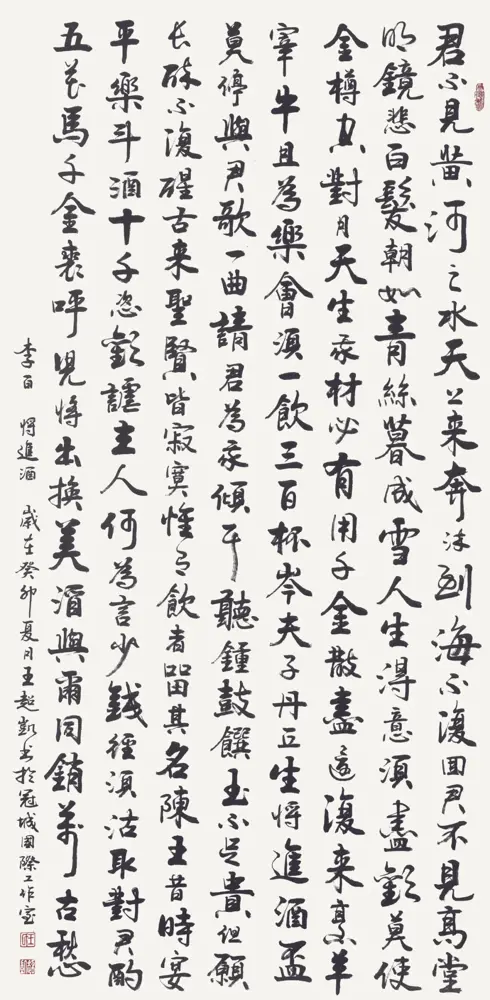 君不見黃河之水天上来奔流到海不復回君不見高堂
明鏡悲白髮朝如青絲暮成雪人生得意須盡歡莫使
金樽空對月天生我材必有用千金散盡還復来烹羊
宰牛且為樂會須一飲三百杯岑夫子丹丘生將進酒盃
莫停與君歌一曲請君為我傾耳聽鍾鼓饌玉不足貴但願
長醉不復醒古来聖賢皆寂寞惟有飲者留其名陳王昔時宴
平樂斗酒十千恣歡謔主人何為言少錢徑須沽取對君酌
五花馬千金裘呼兒將出換美酒與爾同銷萬古愁
李白 將進酒 歲在癸卯夏月王超凱书於冠城國際工作室